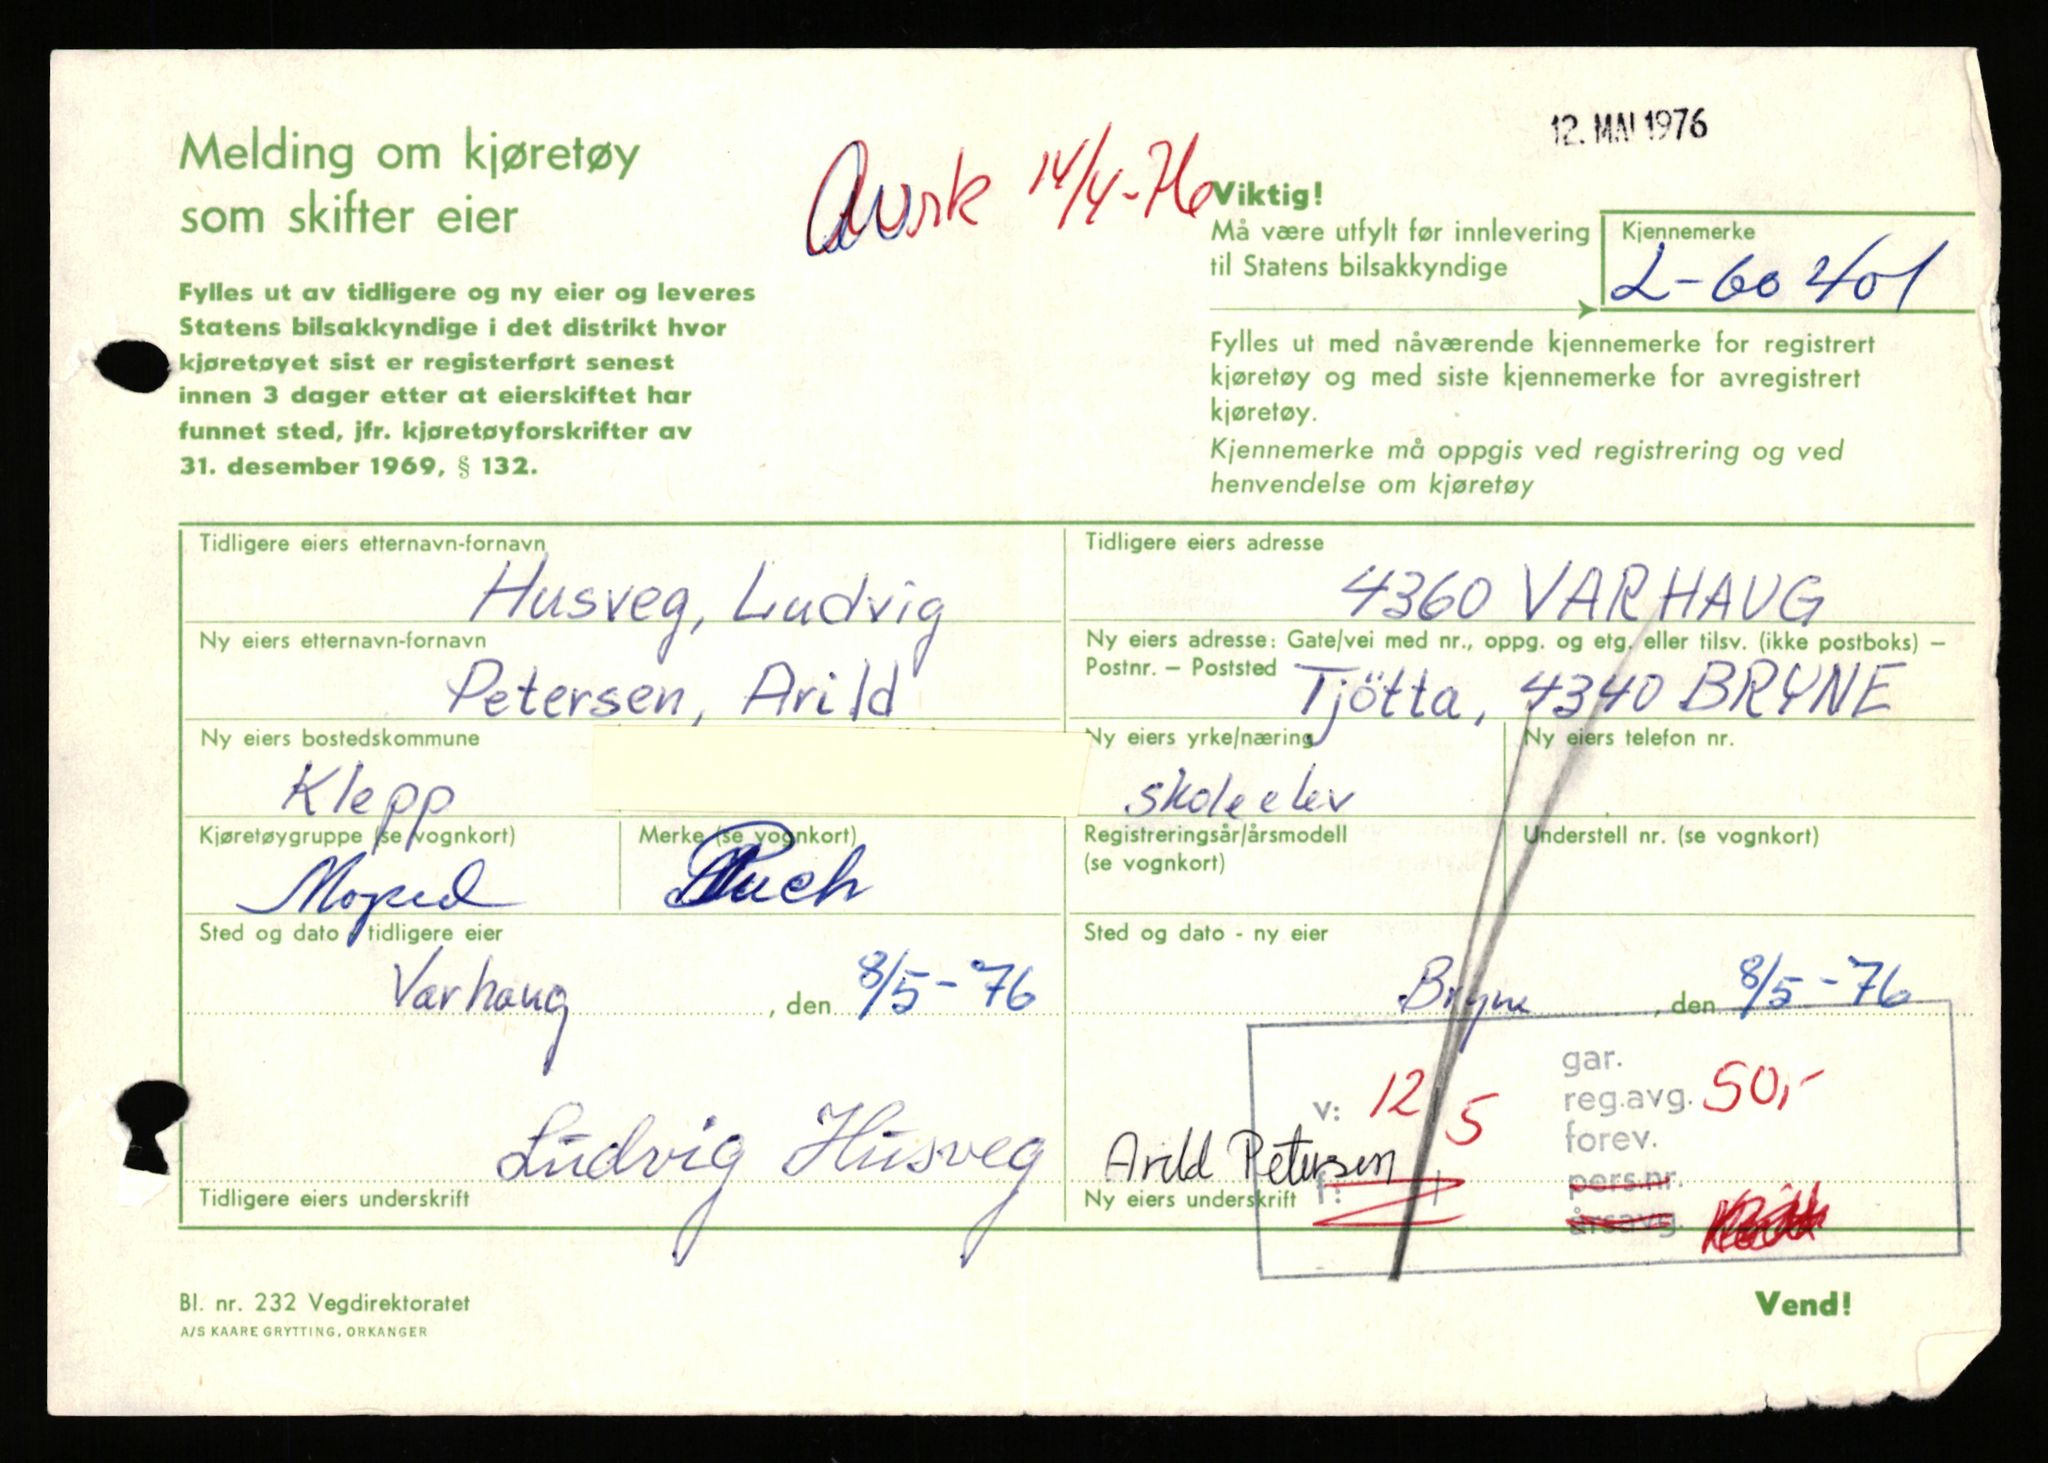 12. MAI 1976
Melding om kjøretøy
som skifter eier
Avsk 14/4-76
Fylles ut av tidligere og ny eier og leveres
Statens bilsakkyndige i det distrikt hvor
kjøretøyet sist er registerført senest
innen 3 dager etter at eierskiftet har
funnet sted, jfr. kjøretøyforskrifter av
31. desember 1969, § 132.
Viktig!
Må være utfylt før innlevering
til Statens bilsakkyndige
Kjennemerke
L-60401
Fylles ut med nåværende kjennemerke for registrert
kjøretøy og med siste kjennemerke for avregistrert
kjøretøy.
Kjennemerke må oppgis ved registrering og ved
henvendelse om kjøretøy
Tidligere eiers etternavn-fornavn
Husveg, Ludvig
Tidligere eiers adresse
4360 VARHAUG
Ny eiers etternavn-fornavn
Petersen, Arild
Ny eiers adresse: Gate/vei med nr., oppg. og etg. eller tilsv. (ikke postboks) –
Postnr. – Poststed
Tjötta, 4340 BRYNE
Ny eiers bostedskommune
Klepp
Ny eiers yrke/næring
skoleelev
Ny eiers telefon nr.
Kjøretøygruppe (se vognkort)
Moped
Merke (se vognkort)
Puch
Registreringsår/årsmodell
(se vognkort)
Understell nr. (se vognkort)
Sted og dato - tidligere eier
Varhaug, den 8/5-76
Sted og dato - ny eier
Bryne, den 8/5-76
Ludvig Husveg
Tidligere eiers underskrift
Arild Petersen
Ny eiers underskrift
v: 12 5
f:
gar.
reg.avg. 50,-
forev.
pers.nr.
årsavg.
Bl. nr. 232 Vegdirektoratet
A/S KAARE GRYTTING, ORKANGER
Vend!